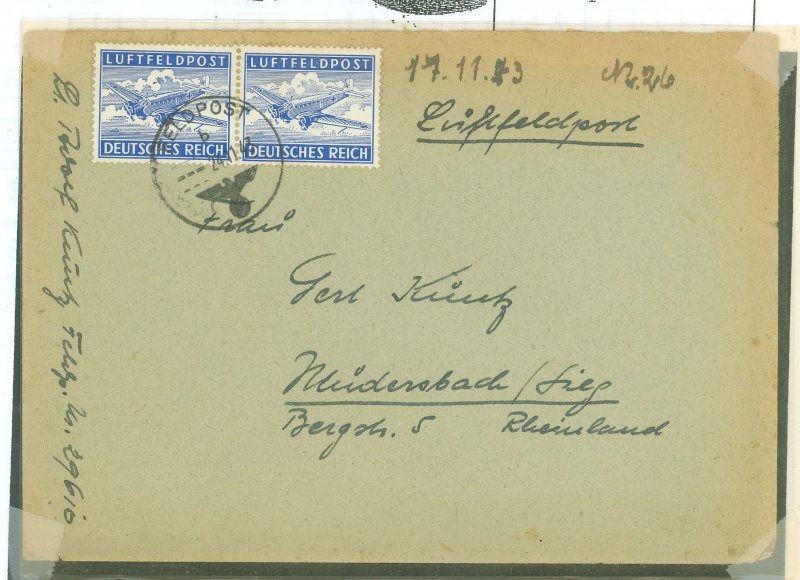 LUFTFELDPOST LUFTFELDPOST
DEUTSCHES REICH DEUTSCHES REICH
FELDPOST
b
17.11.43 Nr. 26
Luftfeldpost
Frau
Gert Küntz
Mudersbach / Sieg
Bergstr. 5 Rheinland
Küntz Feldp. Nr. 29610